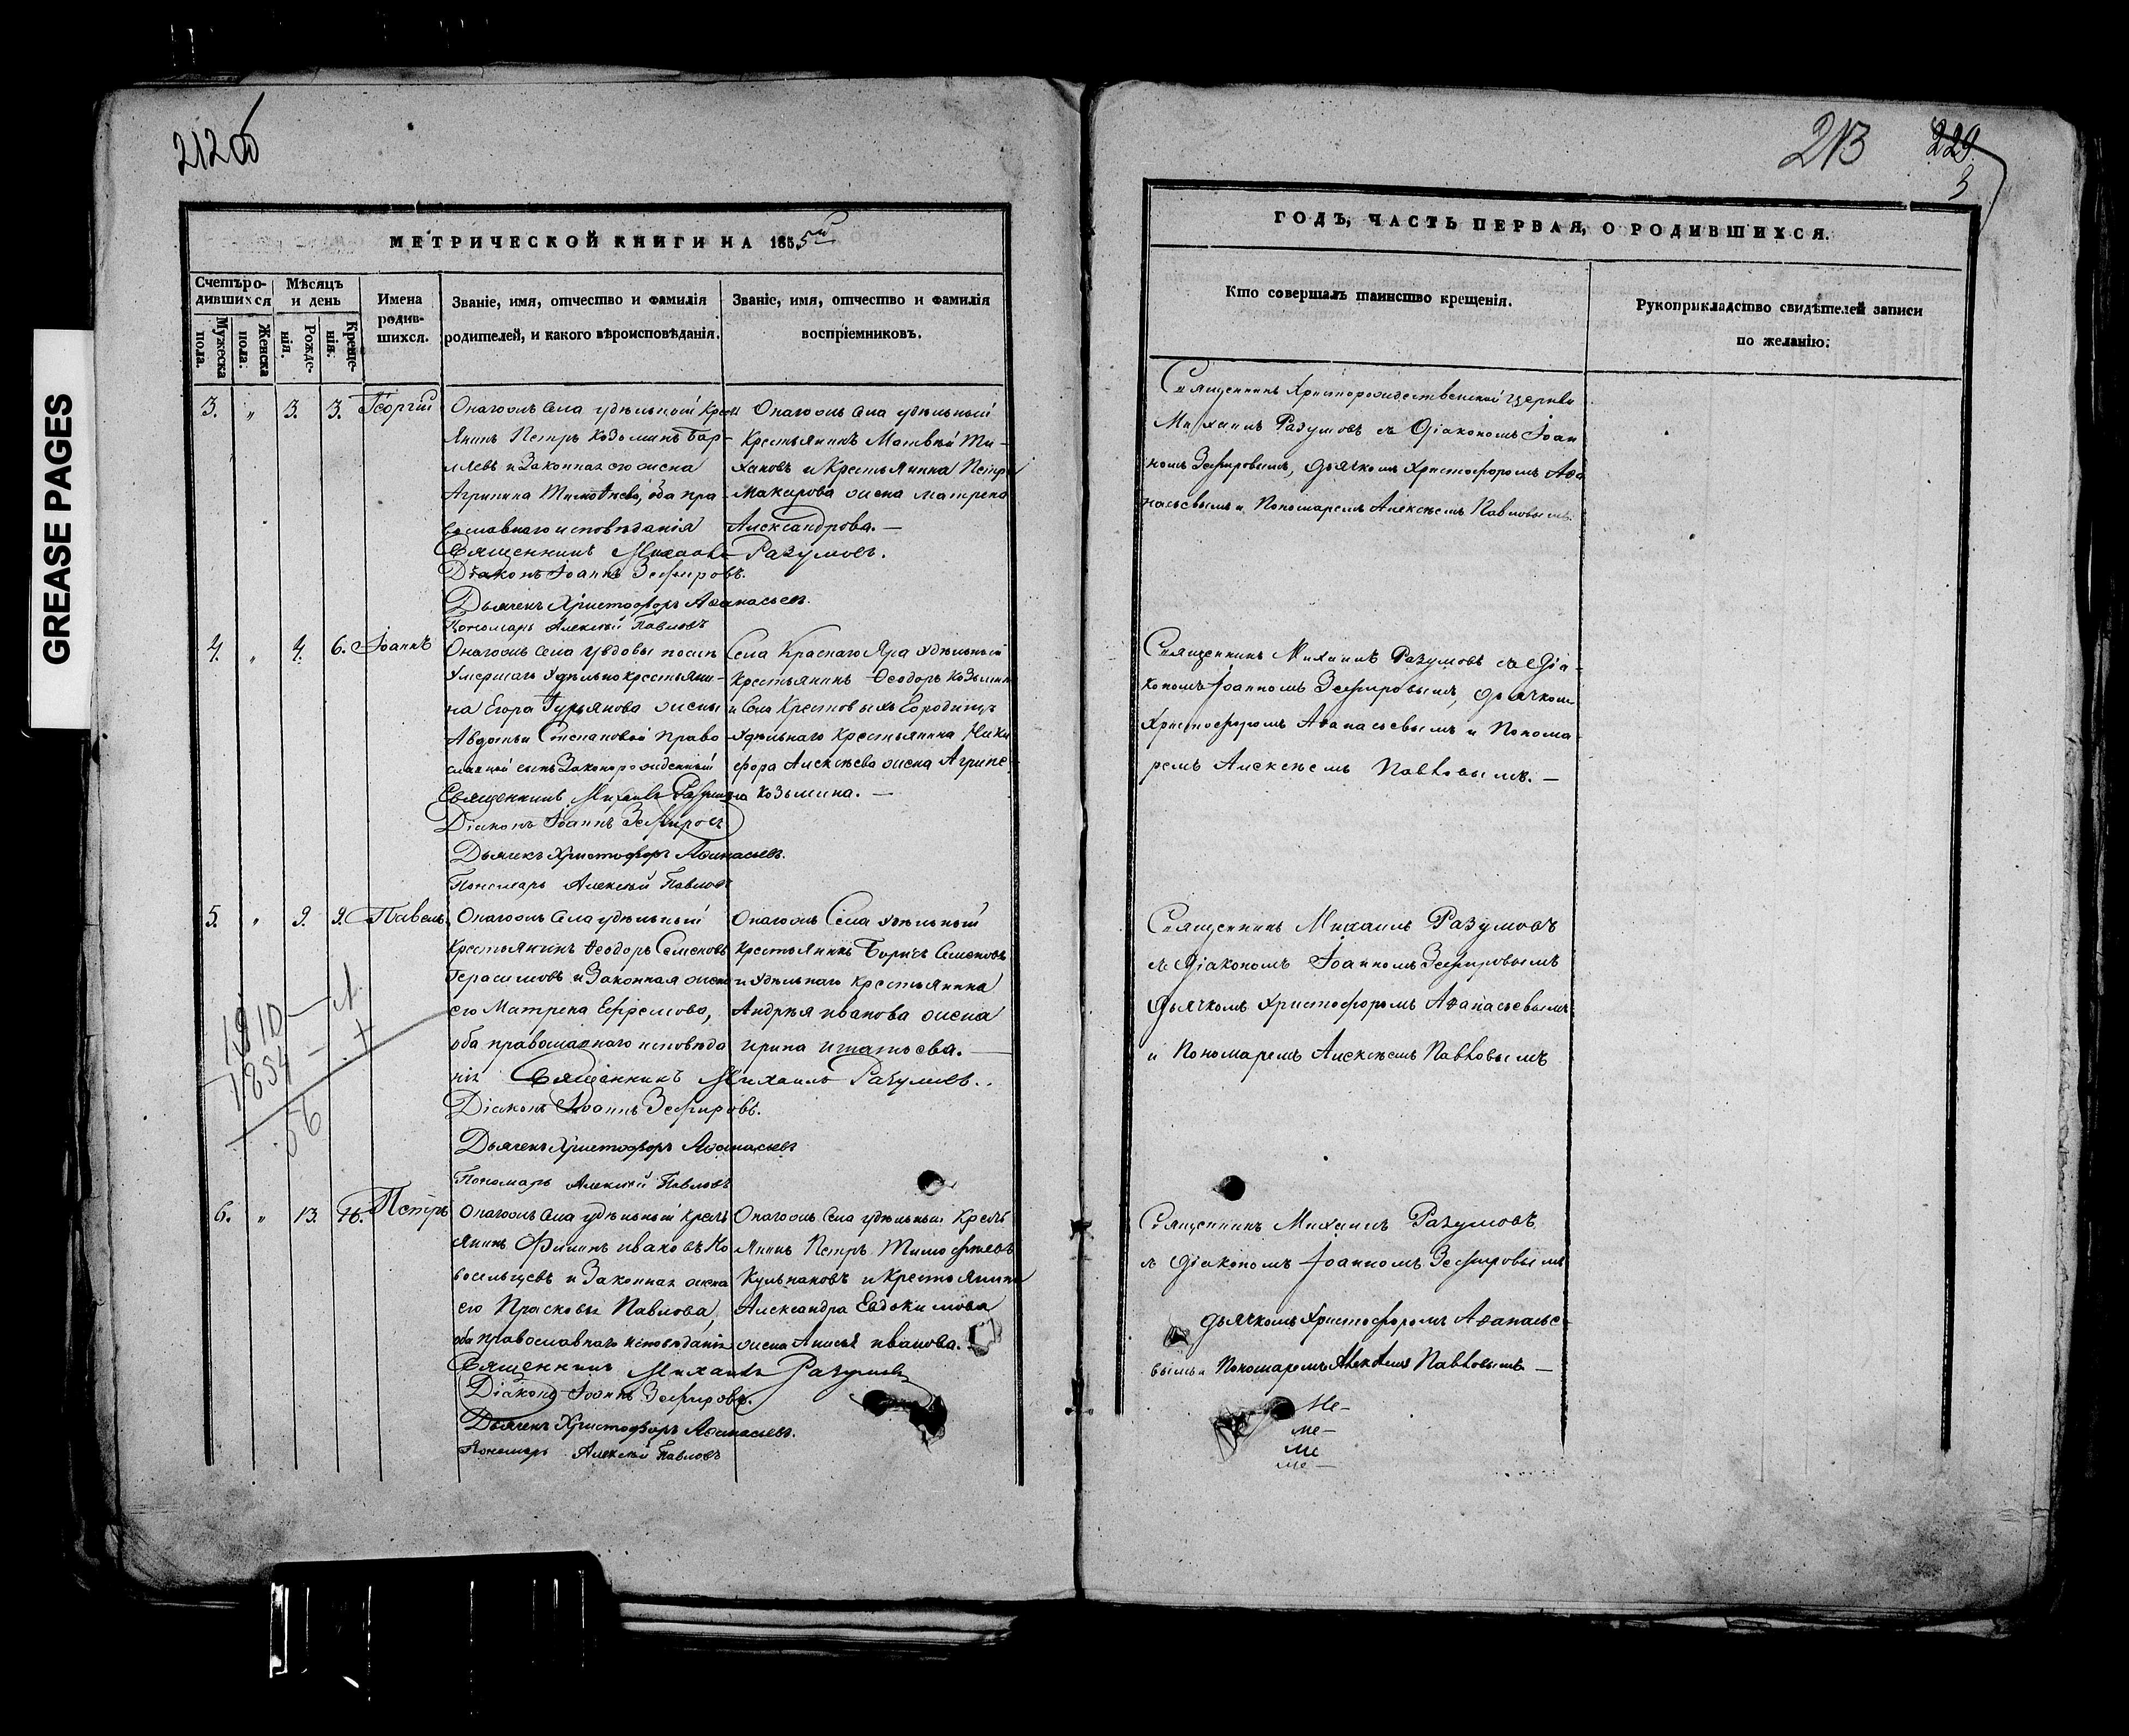 212 об
213
229
3
GREASE PAGES
МЕТРИЧЕСКОЙ КНИГИ НА 1855ый
Счетъ родившихся
Мѣсяцъ и день
Имена родившихся.
Званіе, имя, отчество и фамилія родителей, и какого вѣроисповѣданія.
Званіе, имя, отчество и фамилія воспріемниковъ.
Мужеска пола.
Женска пола.
Рожденія.
Крещенія.
3. " 3. 3. Георгій
Онагожъ села удѣльный крест
янинъ Петръ Козьминъ
и законная его жена
Агрипина Тимоѳеева, оба пра
вославнаго исповѣданія
Онагожъ села удѣльный
крестьянинъ Матвѣй Ти-
хановъ и крестьянина Петра
Макарова жена Матрена
Александрова. —
Священникъ Михаилъ Разумовъ.
Діаконъ Іоаннъ Зефировъ.
Дьячекъ Христофоръ Аѳанасьевъ.
Пономарь Алексѣй Павловъ
4. " 4. 6. Іоаннъ
Онагожъ села у вдовы послѣ
умершаго удѣльно крестьяни-
на Егора Гурьянова жены
Авдотьи Степановой право
славной сынъ законорожденный
Села Краснаго Яра удѣльный
крестьянинъ Ѳеодоръ Козьминъ
и села Крестовыхъ Городищъ
удѣльнаго крестьянина Ники
фора Алексѣева жена Агрипе
на Козьмина. —
Священникъ Михаилъ Разумовъ
Діаконъ Іоаннъ Зефировъ
Дьячекъ Христофоръ Аѳанасьевъ.
Пономарь Алексѣй Павловъ
5. " 9. 9. Павелъ
Онагожъ села удѣльный
крестьянинъ Ѳеодоръ Семеновъ
Герасимовъ и законная жена
его Матрена Ефремова,
оба православнаго исповѣда
нія
Онагожъ села удѣльный
крестьянинъ Борисъ Семеновъ
и удѣльнаго крестьянина
Андрея Иванова жена
Ирина Игнатьева. —
Священникъ Михаилъ Разумовъ.
Діаконъ Іоаннъ Зефировъ.
Дьячекъ Христофоръ Аѳанасьевъ
Пономарь Алексѣй Павловъ
1910
1854
56
6. " 13. 16. Петръ
Онагожъ села удѣльный кресть
янинъ Филипъ Ивановъ Но
восельцевъ и законная жена
его Прасковья Павлова,
оба православнаго исповѣданія
Онагожъ села удѣльный кресть
янинъ Петръ Тимофѣевъ
Кульпановъ и крестьянина
Александра Евдокимова
жена Анисья Иванова.
Священникъ Михаилъ Разумовъ
Діаконъ Іоаннъ Зефировъ.
Дьячекъ Христофоръ Аѳанасьевъ.
Пономарь Алексѣй Павловъ
ГОДЪ, ЧАСТЬ ПЕРВАЯ, О РОДИВШИХСЯ.
Кто совершалъ таинство крещенія.
Рукоприкладство свидѣтелей записи по желанію.
Священникъ Христорождественской церкви
Михаилъ Разумовъ съ Діакономъ Іоан
номъ Зефировымъ, дьячкомъ Христофоромъ Аѳа
насьевымъ и Пономаремъ Алексѣемъ Павловымъ.
Священникъ Михаилъ Разумовъ съ Діа-
кономъ Іоанномъ Зефировымъ, дьячкомъ
Христофоромъ Аѳанасьевымъ и Понома
ремъ Алексѣемъ Павловымъ. —
Священникъ Михаилъ Разумовъ
съ Діакономъ Іоанномъ Зефировымъ
дьячкомъ Христофоромъ Аѳанасьевымъ
и Пономаремъ Алексѣемъ Павловымъ
Священникъ Михаилъ Разумовъ
съ Діакономъ Іоанномъ Зефировымъ
дьячкомъ Христофоромъ Аѳанасье-
вымъ и Пономаремъ Алексѣемъ Павловымъ —
Ме-
ме-
ме
ме-